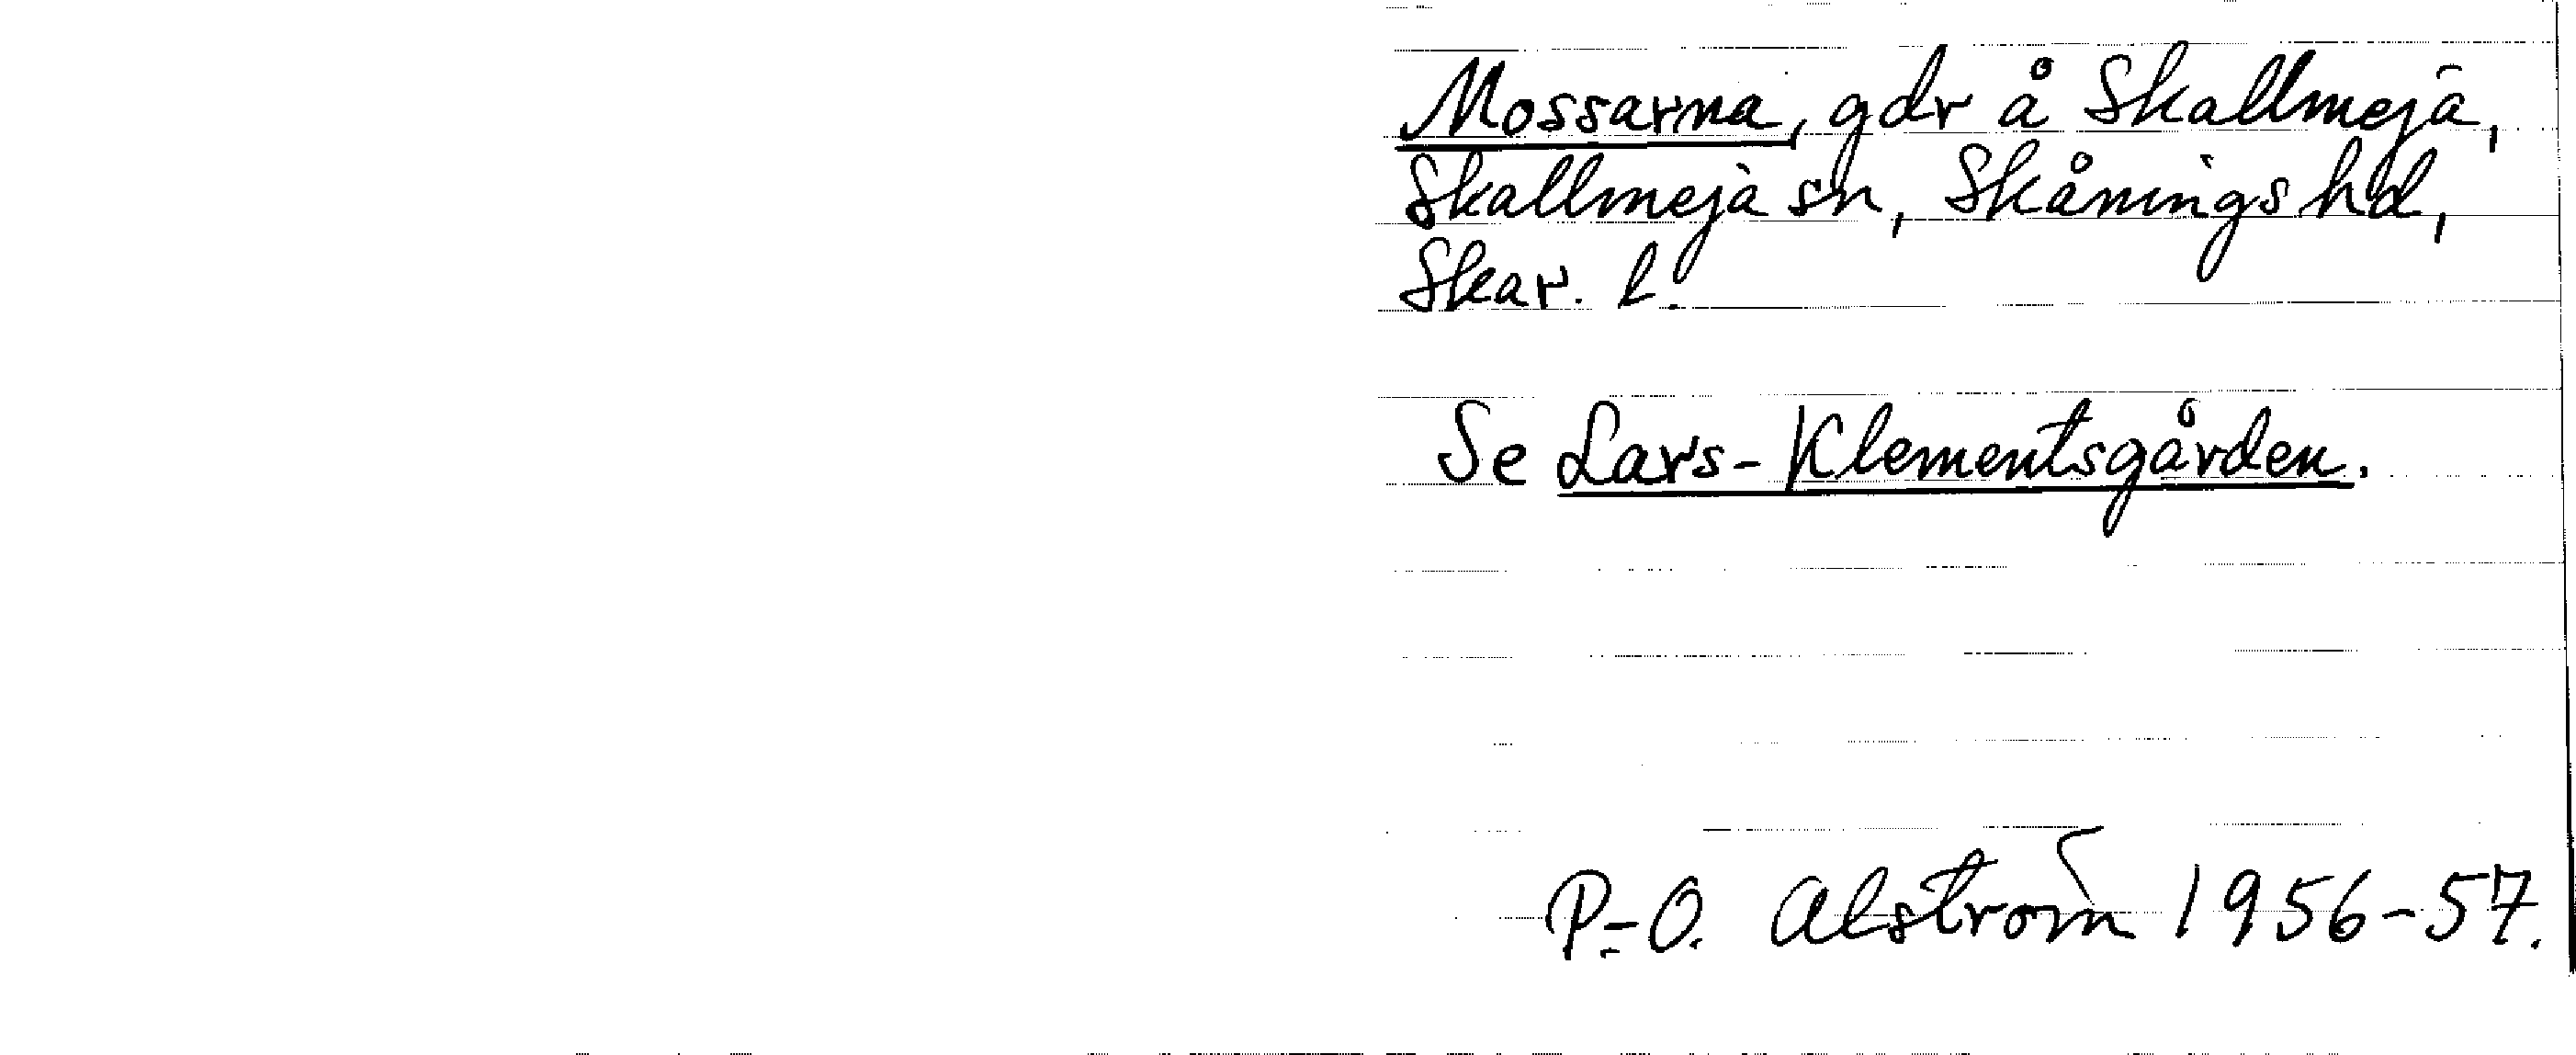 Mossarna, gdr å Skallmeja,
Skallmeja sn, Skånings hd,
Skar. l.
Se Lars-Klementsgården.
P.-O. Alström 1956-57.